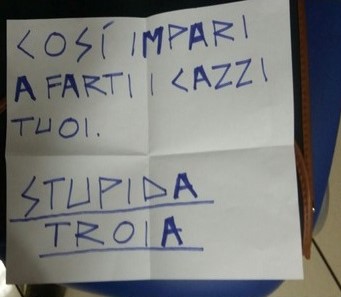 COSÍ IMPARI
A FARTI I CAZZI
TUOI.
STUPIDA
TROIA